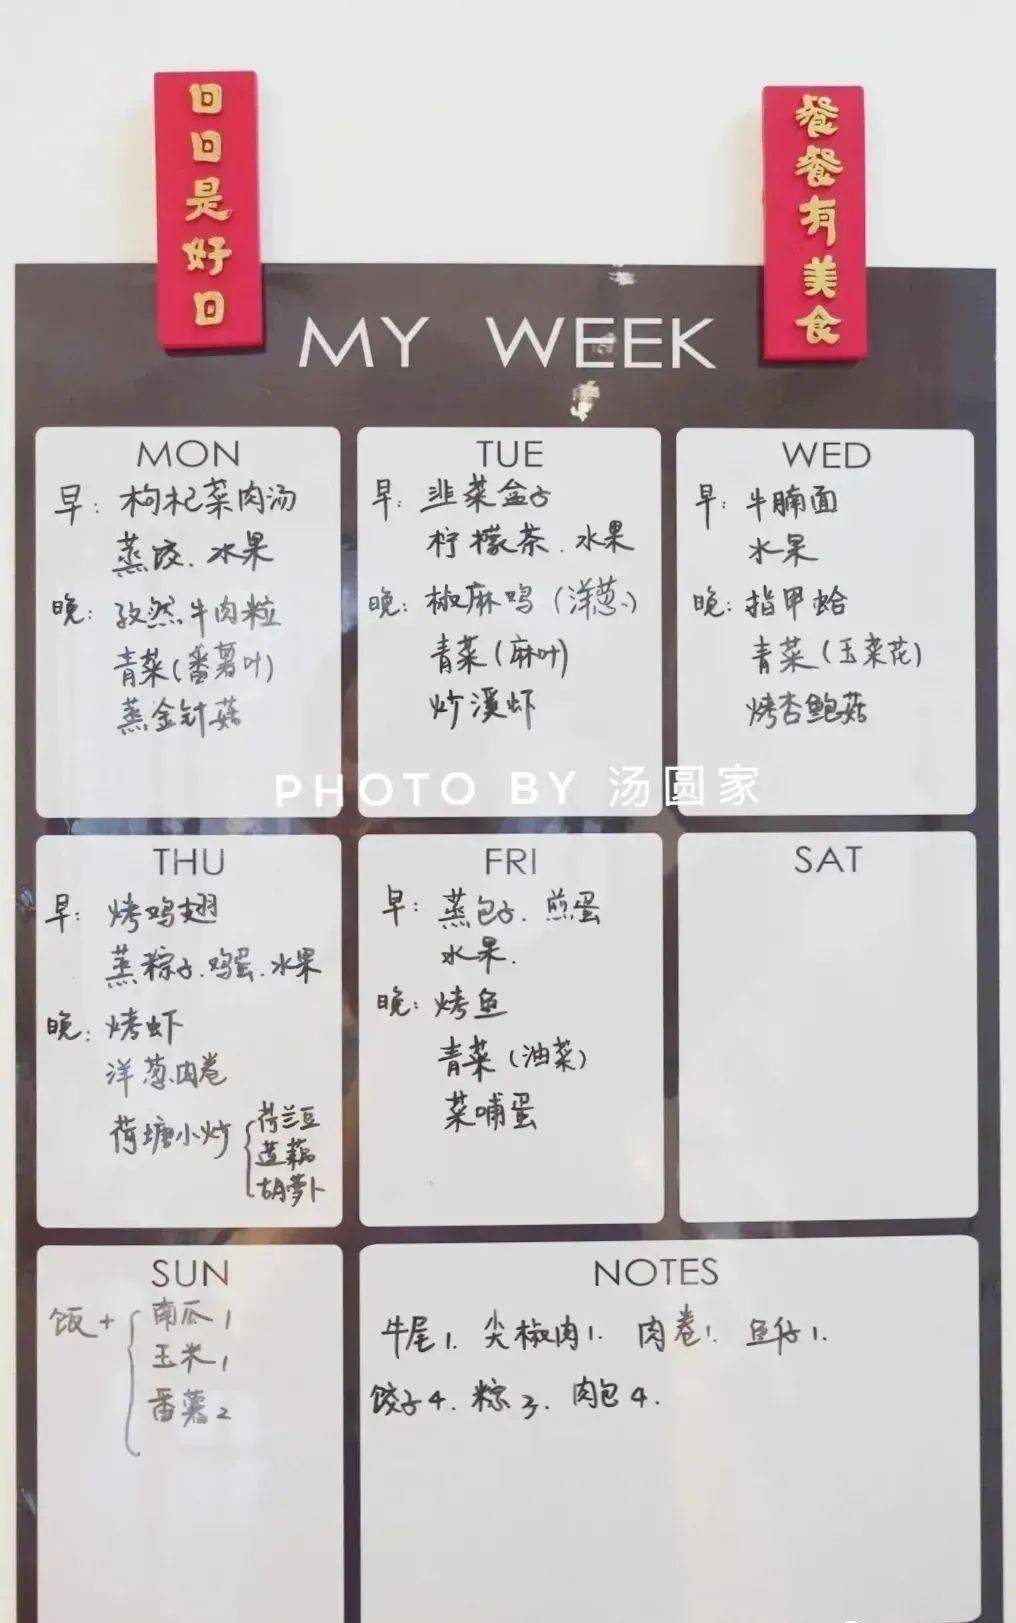 日日是好日
餐餐有美食
MY WEEK
MON
早: 枸杞菜肉汤
蒸饺.水果
晚: 孜然牛肉粒
青菜(番薯叶)
蒸金针菇
TUE
早: 韭菜盒子
柠檬茶.水果
晚: 椒麻鸡(洋葱)
青菜(麻叶)
炒溪虾
WED
早: 牛腩面
水果
晚: 指甲蛤
青菜(玉菜花)
烤杏鲍菇
PHOTO BY 汤圆家
THU
早: 烤鸡翅
蒸粽子.鸡蛋.水果
晚: 烤虾
洋葱肉卷
荷塘小炒
荷兰豆
莲藕
胡萝卜
FRI
早: 蒸包子.煎蛋
水果.
晚: 烤鱼
青菜(油菜)
菜哺蛋
SAT
SUN
饭+
南瓜1
玉米1
番薯2
NOTES
牛尾1. 尖椒肉1. 肉卷1. 鱼仔1.
饺子4. 粽3. 肉包4.